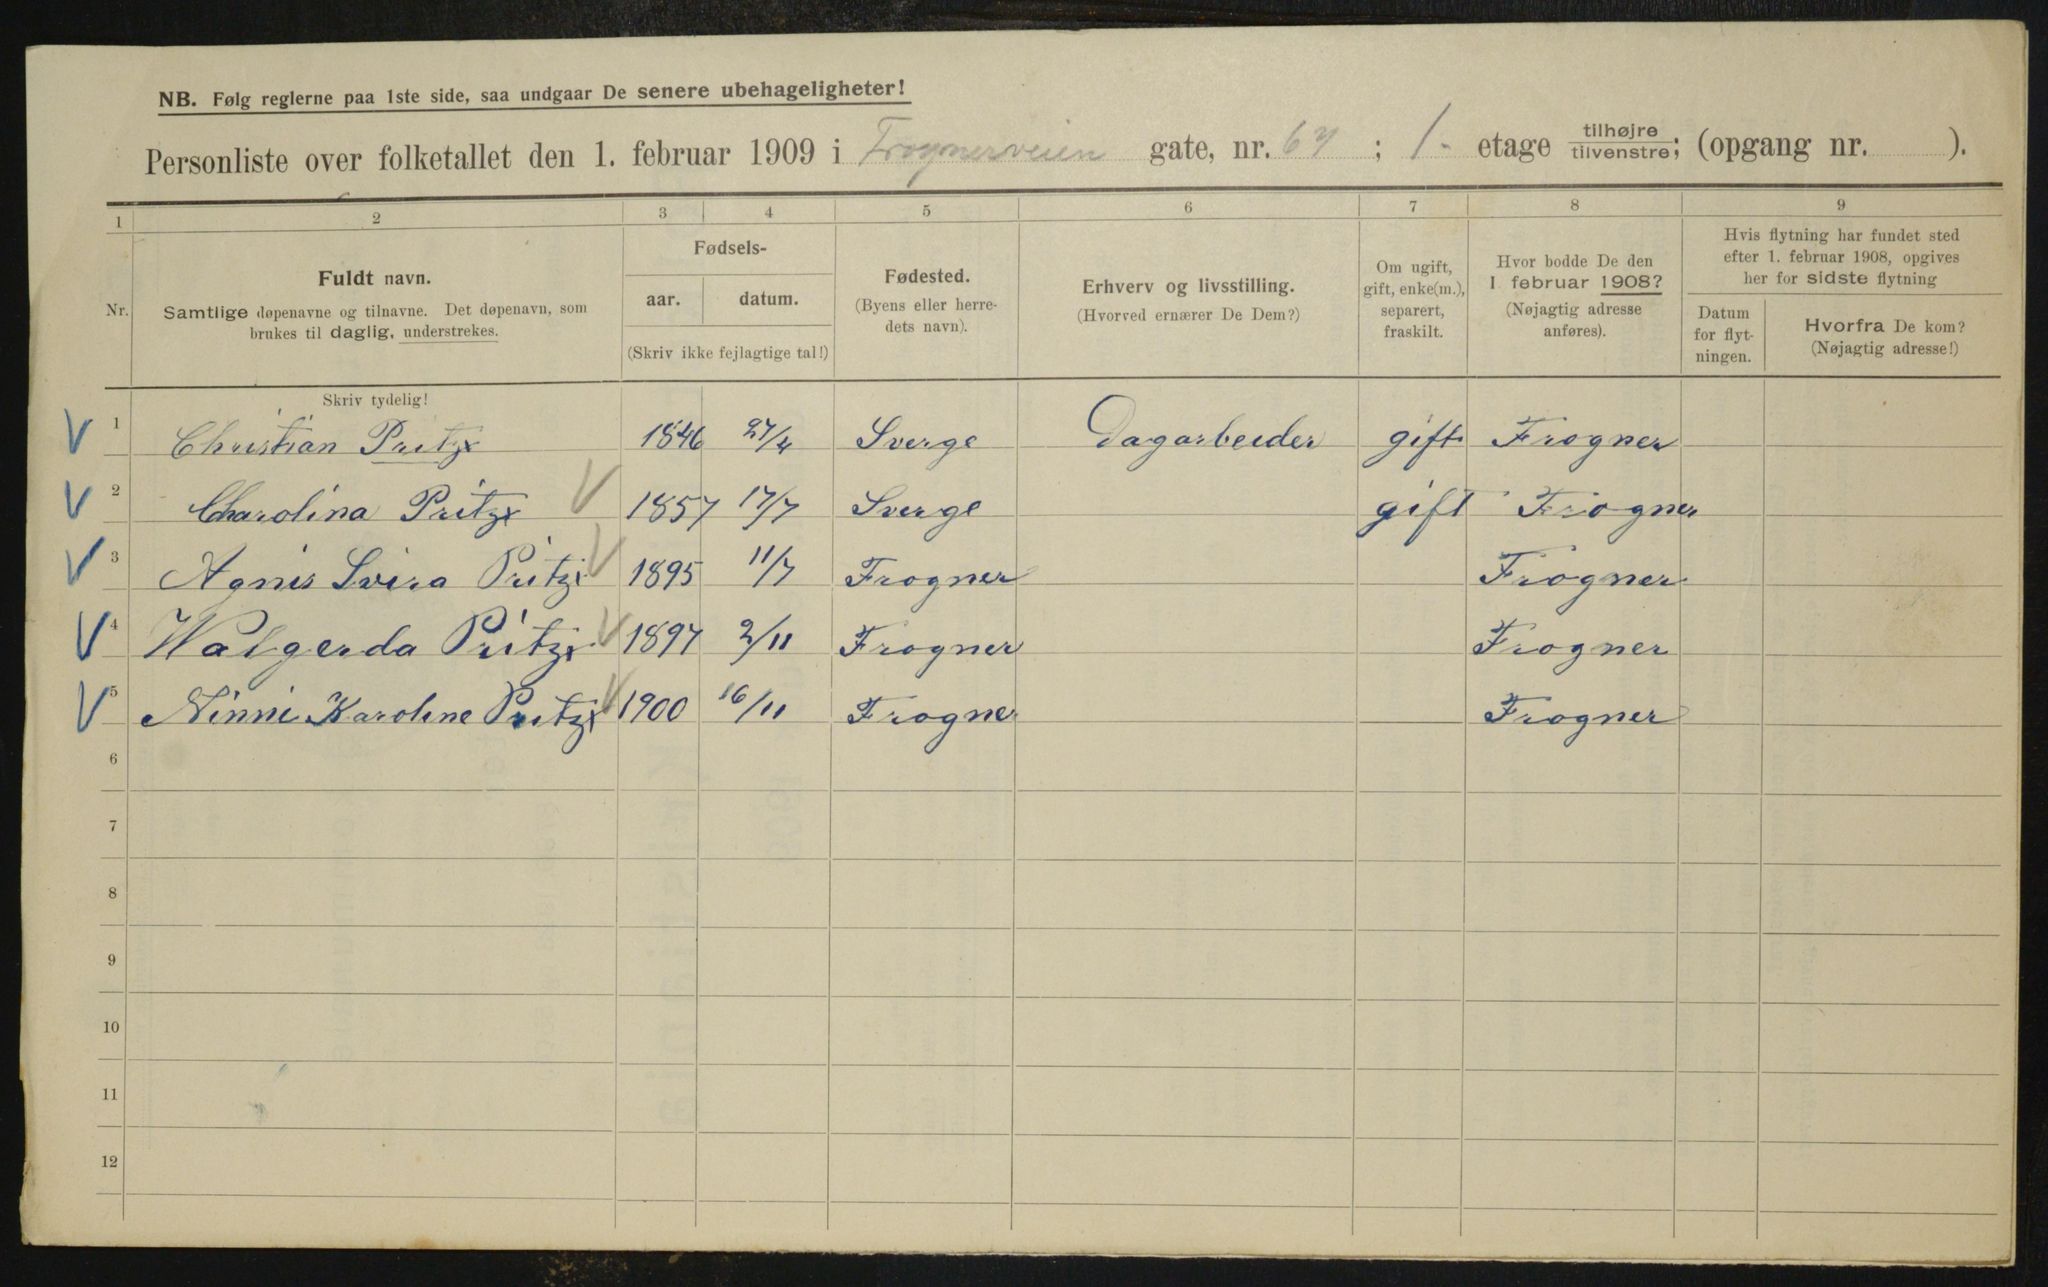 NB. Følg reglerne paa 1ste side, saa undgaar De senere ubehageligheter!
Personliste over folketallet den 1. februar 1909 i Frognerveien gate, nr. 67; 1. etage tilhøjre tilvenstre; (opgang nr. ).
1 2 3 4 5 6 7 8 9
Nr.
Fuldt navn.
Samtlige døpenavne og tilnavne. Det døpenavn, som
brukes til daglig, understrekes.
Fødsels-
aar. datum.
(Skriv ikke fejlagtige tal!)
Fødested.
(Byens eller herre-
dets navn).
Erhverv og livsstilling.
(Hvorved ernærer De Dem?)
Om ugift,
gift, enke(m.),
separert,
fraskilt.
Hvor bodde De den
1 februar 1908?
(Nøjagtig adresse
anføres).
Hvis flytning har fundet sted
efter 1. februar 1908, opgives
her for sidste flytning
Datum
for flyt-
ningen.
Hvorfra De kom?
(Nøjagtig adresse!)
Skriv tydelig!
1 Christian Pritz 1846 27/4 Sverge Dagarbeider gift Frogner
2 Charolina Pritz 1857 17/7 Sverge gift Frogner
3 Agnis Svira Pritz 1895 11/7 Frogner Frogner
4 Walgerda Pritz 1897 2/11 Frogner Frogner
5 Ninni Karoline Pritz 1900 16/11 Frogner Frogner
6
7
8
9
10
11
12